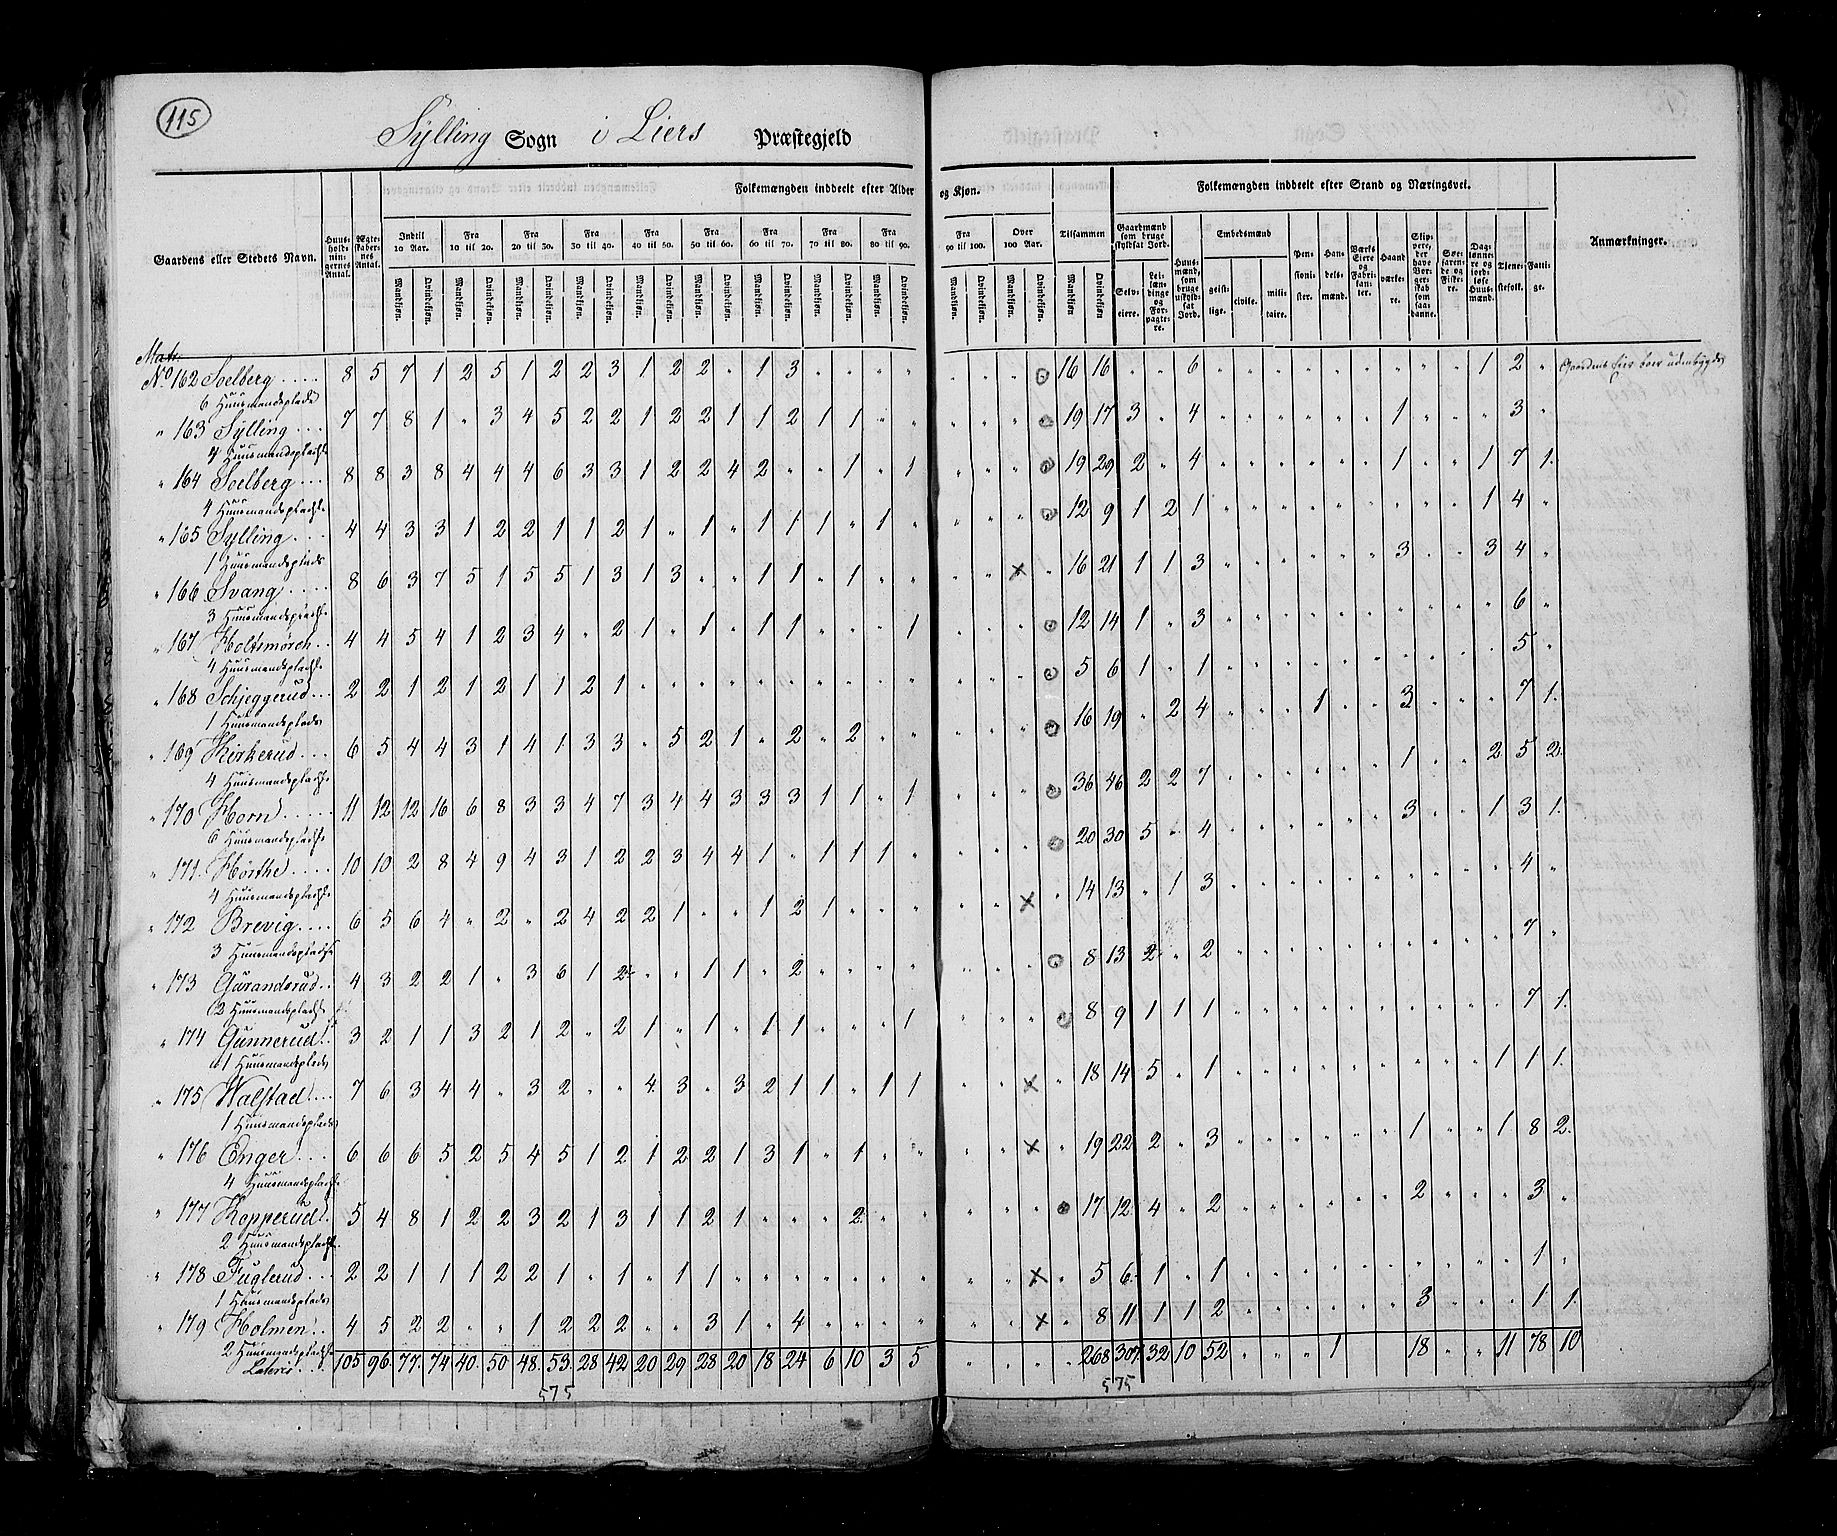 115
Sylling Sogn i Liers Præstegjeld
Gaardens eller Stedets Navn. Huus-hold-nin-gernes Antal. Ægte-skaber-nes Antal. Folkemængden inddeelt efter Alder og Kjøn. Tilsammen Folkemængden inddeelt efter Stand og Næringsvei. Anmærkninger.
Indtil 10 Aar. Fra 10 til 20. Fra 20 til 30. Fra 30 til 40. Fra 40 til 50. Fra 50 til 60. Fra 60 til 70. Fra 70 til 80. Fra 80 til 90. Fra 90 til 100. Over 100 Aar. Gaardmænd som bruge skyldsat Jord. Huus-mænd, som bruge uskyld-sat Jord. Embedsmænd Pen-sioni-ster. Han-dels-mænd. Værks Eiere og Fabri-kan-ter. Haand værke-re. Skip-pere, der have Bor-ger-skab som saa-danne. Søe-faren-de og Fiske-re. Dag-lønne-re og jord-løse Huus-mænd. Tjene-stefolk. Fatti-ge.
Mandkjøn. Qvindekjøn. Mandkjøn. Qvindekjøn. Mandkjøn. Qvindekjøn. Mandkjøn. Qvindekjøn. Mandkjøn. Qvindekjøn. Mandkjøn. Qvindekjøn. Mandkjøn. Qvindekjøn. Mandkjøn. Qvindekjøn. Mandkjøn. Qvindekjøn. Mandkjøn. Qvindekjøn. Mandkjøn. Qvindekjøn. Mandkjøn. Qvindekjøn Selv-eiere. Lei-læn-dinge og For-pagte-re. geist-lige. civile. mili-taire.
Matr.
No 162 Soelberg .... 8 5 7 1 2 5 1 2 2 3 1 2 2 " 1 3 " " " " " " " 16 16 " " 6 " " " " " " " " " 1 2 " Gaardens Eier boer udenbygds
6 Huusmandsplads
" 163 Sylling .... 7 7 8 1 " 3 4 5 2 2 1 2 2 1 1 2 1 1 " " " " " 19 17 3 " 4 " " " " " " 1 " " " 3 "
4 Huusmandspladse
" 164 Soelberg ... 8 8 3 8 4 4 4 6 3 3 1 2 2 4 2 " " 1 " 1 " " " 19 29 2 " 4 " " " " " " 1 " " 1 7 1.
4 Huusmandspladse
" 165 Sylling .... 4 4 3 3 1 2 2 1 1 2 1 " 1 " 1 1 1 " 1 " " " " 12 9 1 2 1 " " " " " " " " " 1 4 "
1 Huusmandsplads
" 166 Svang .... 8 6 3 7 5 1 5 5 1 3 1 3 " " 1 1 " 1 " " " " x " 16 21 1 1 3 " " " " " " 3 " " 3 4 "
3 Huusmandspladse
" 167 Holtsmørch .. 4 4 5 4 1 2 3 4 " 2 1 " 1 " 1 1 " " " 1 " " " 12 14 1 " 3 " " " " " " " " " " 6 "
4 Huusmandspladse
" 168 Schjeggerud ... 2 2 1 2 1 2 1 1 2 1 " " " " " " " " " " " " " 5 6 1 " 1 " " " " " " " " " " 5 "
1 Huusmandsplads
" 169 Kirkerud ... 6 5 4 4 3 1 4 1 3 3 " 5 2 1 " 2 " 2 " " " " " 16 19 " 2 4 " " " " 1 " 3 " " " 7 1.
4 Huusmandspladse
" 170 Horn ..... 11 12 12 16 6 8 3 3 4 7 3 4 4 3 3 3 1 1 " 1 " " " 36 46 2 2 7 " " " " " " 1 " " 2 5 2.
6 Huusmandspladse
" 171. Hørthe .... 10 10 2 8 4 9 4 3 1 2 2 3 4 4 1 " 1 1 1 " " " " 20 30 5 " 4 " " " " " " 3 " " 1 3 1.
4 Huusmandspladse
" 172 Brevig .... 6 5 6 4 " 2 " 2 4 2 2 1 " " 1 2 1 " " " " " x " 14 13 " 1 3 " " " " " " " " " " 4 "
3 Huusmandspladse
" 173 Gurandsrud .. 4 3 2 2 1 " 3 6 1 2 " " 1 1 " 2 " " " " " " " 8 13 2 " 2 " " " " " " " " " " 7 "
2 Huusmandspladse
" 174 Gunnerud .. 3 2 1 1 3 2 1 2 " 2 1 " 1 " 1 1 " " " 1 " " " 8 9 1 1 1 " " " " " " " " " " 7 1.
1 Huusmandsplads
" 175 Walstad .... 7 6 3 4 4 " 3 2 " " 4 3 " 3 2 1 1 " 1 1 " " x " 18 14 5 " 1 " " " " " " " " " 1 1 1.
1 Huusmandsplads
" 176 Enger .... 6 6 6 5 2 5 4 5 1 2 1 2 2 1 3 1 " 1 " " " " x " 19 22 2 " 3 " " " " " " 1 " " 1 8 2.
4 Huusmandspladse
" 177 Kopperud . 5 4 8 1 2 2 3 2 1 3 1 1 2 1 " " " 2 " " " " " 17 12 4 " 2 " " " " " " 2 " " " 3 "
2 Huusmandspladse
" 178 Fuglerud ... 2 2 1 1 1 2 2 1 " 1 " 1 1 " " " " " " " " " x " 5 6 1 " 1 " " " " " " " " " " 1 "
1 Huusmandsplads
" 179 Holmen .. 4 5 2 2 " " 1 2 2 2 " " 3 1 " 4 " " " " " " x " 8 11 1 1 2 " " " " " " 3 " " " 1 1.
2 Huusmandspladse
Lateris .. 105 96 77. 74 40. 50 48. 53. 28 42 20 29 28 20 18 24 6 10 3 5 " " " " 268 307. 32 10 52 " " " " 1 " 18 " " 11 78 10
575 575